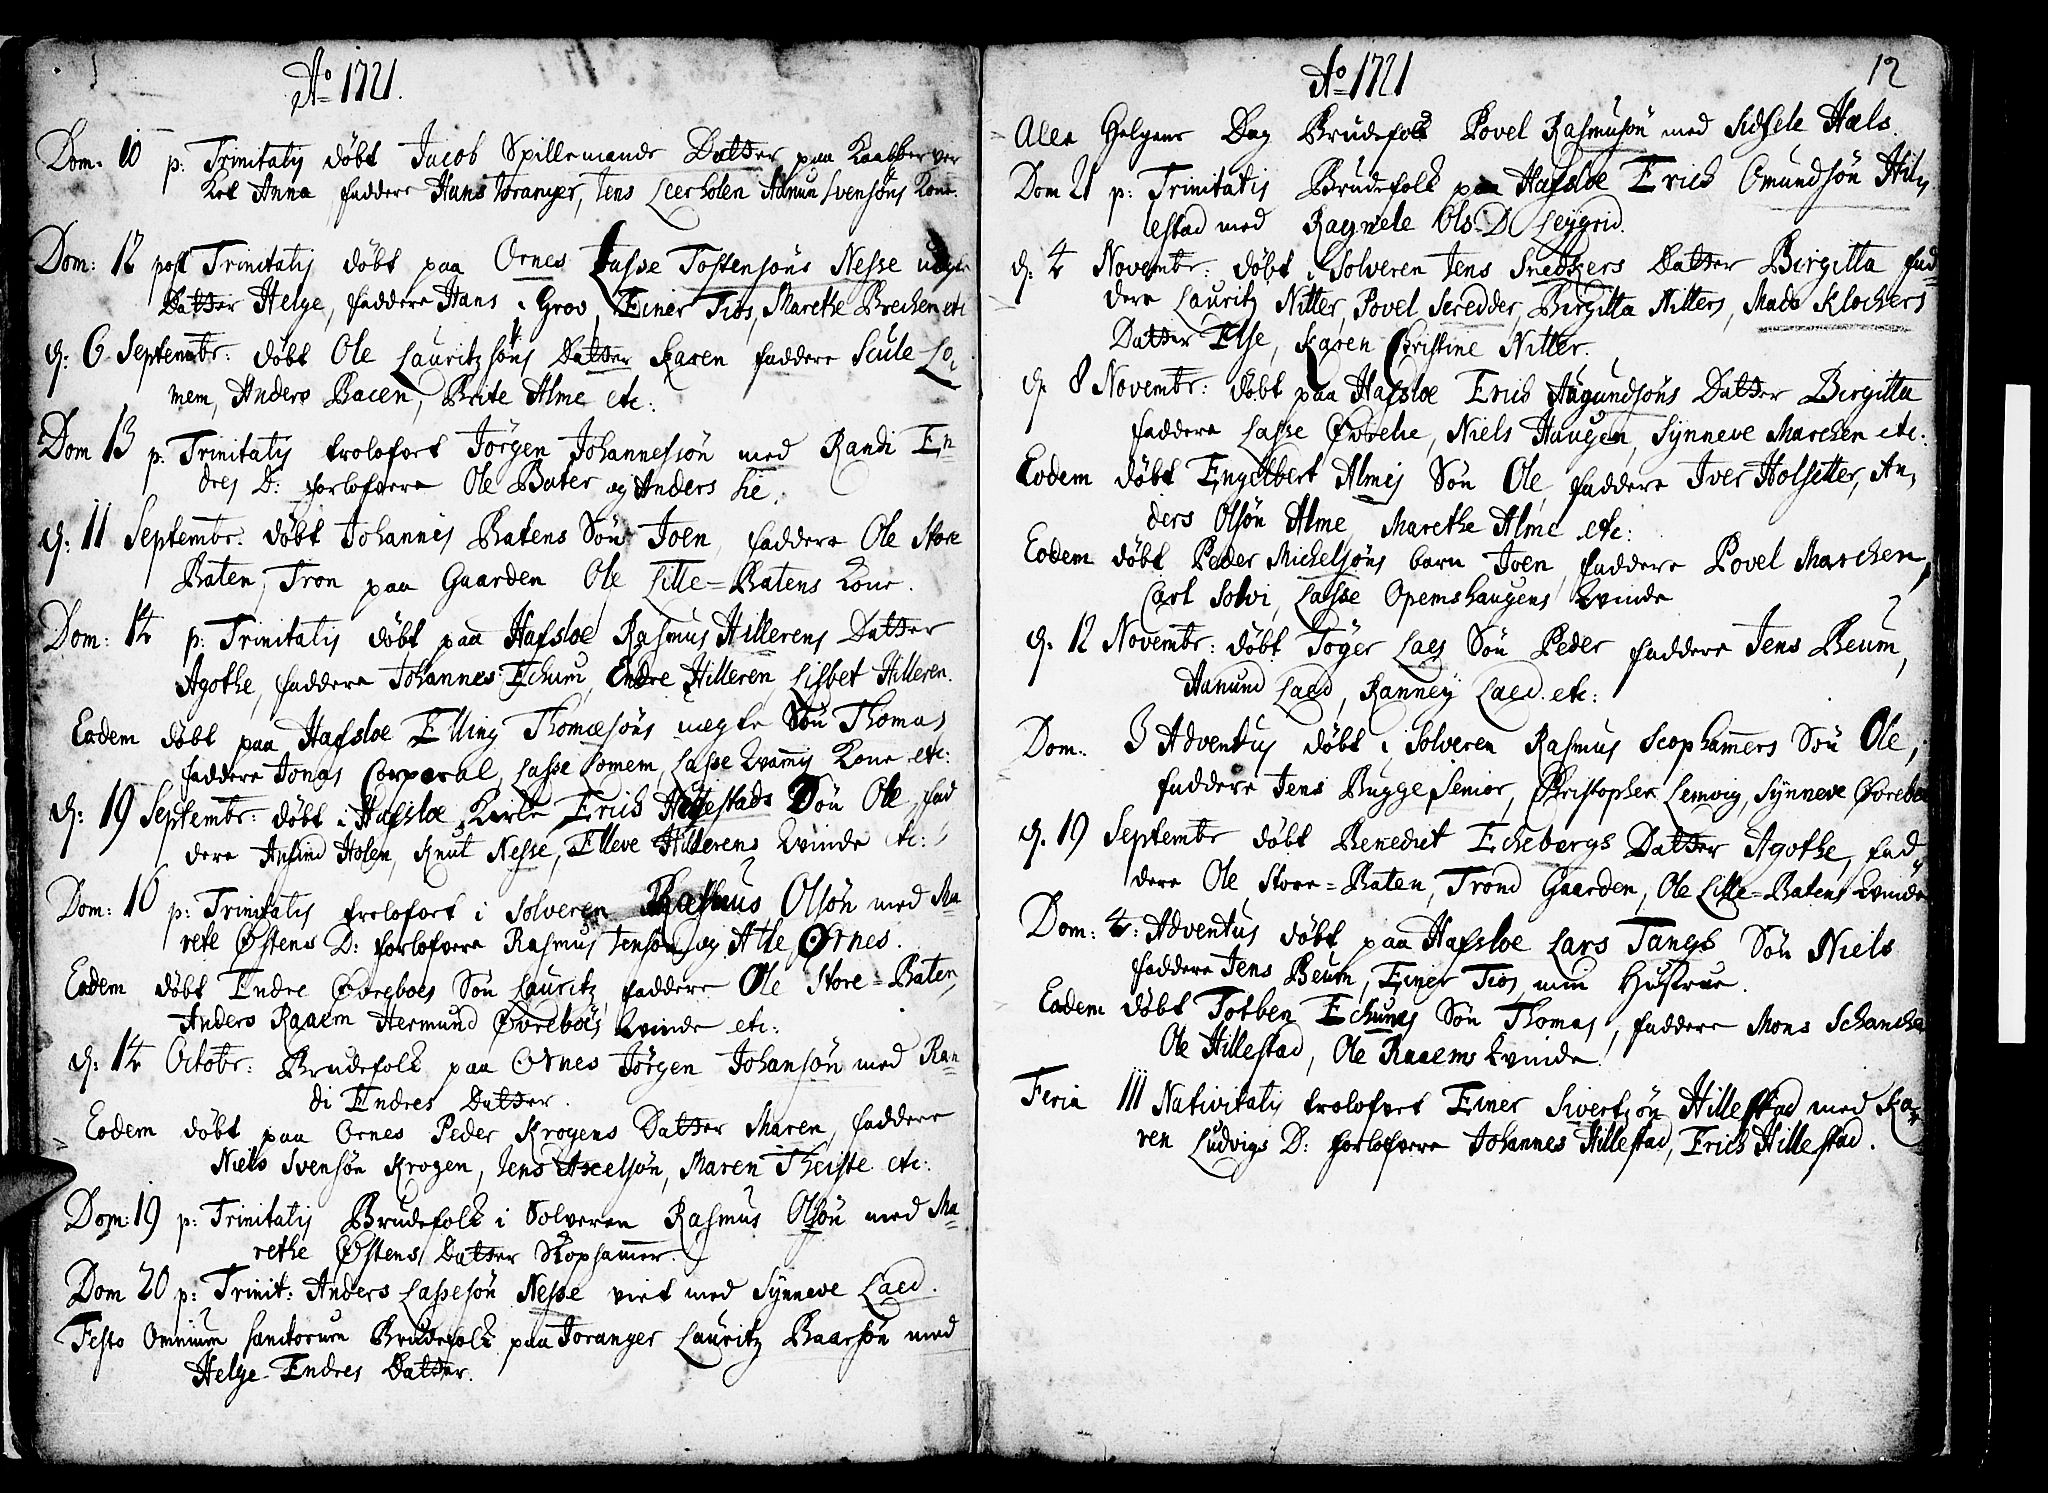 Ao 1721.
Dom: 10 p: Trinitatis døbt Jacob Spillemands Datter paa Kaabberver
ket Anna faddere Hans Joranger, Jens Leerholen Aamun Svensøns Kone.
Dom: 12 post Trinitatis døbt paa Ornes Lasse Tostensøns Nesse uægte
Datter Helge, faddere Hans i Grov, Einer Tiøs, Marethe Brechen etc
d: 6 Septembr: døbt Ole Lauritzsøns Datter Karen faddere Scule Lo,
mem, Anders Bacen, Brite Alme etc:
Dom 13 p: Trinitatis trolofvet Jørgen Johannessøn med Randi En=
dres D: forlofvere Ole Bater og Anders Lie.
d: 11 Septembr. døbt Johannes Batens Søn Joen, faddere Ole Store
Baten, Tron paa Gaarden Ole Lille=Batens Kone.
Dom: 14 p: Trinitatis døbt paa Hafsloe Rasmus Hillerens Datter
Agothe, faddere Johannes Echum, Endre Hilleren, Lisbet Hilleren.
Eodem døbt paa Hafsloe Elling Thomæsøns uægte Søn Thomas
faddere Jonas Corporal, Lasse Lomem, Lasse Kvams Kone etc:
d: 19 Septembr: døbt i Hafsloe Kirke Erich Hillestads Søn Ole, fad
dere Anfind Holen, Knut Nesse, Elleve Hillerens Kvinde etc:
Dom: 16 p: Trinitatis trolofvet i Solveren Rasmus Olsøn med Ma=
rete Østens D: forlofvere Rasmus Jensøn og Atle Ornes.
Eodem døbt Endre Øvreboes Søn Lauritz, faddere Ole Store=Baten,
Anders Raaem Hermund Øvreboes Kvinde etc:
d: 14 Octobr: Brudefolk paa Ornes Jørgen Johansøn med Ran=
di Endres Datter.
Eodem døbt paa Ornes Peder Krogens Datter Maren, faddere
Niels Svensøn Krogen, Jens Axelsøn, Maren Theiste etc:
Dom: 19 p: Trinitatis Brudefolk i Solveren Rasmus Olsøn med Ma=
rethe Østens Datter Skophamer.
Dom 20 p: Trinit: Anders Lassesøn Nesse viet med Synneve Laed.
Festo Omnium Sanctorum Brudefolk paa Joranger Lauritz Baarsøn med
Helge Endres Datter.
12
Ao 1721
Alle Helgens Dag Brudefolk Povel Rasmusøn med Sidsele Hæls.
Dom 21 p: Trinitatis Brudefolk paa Hafsloe Erich Omundsøn Hil,
lestad med Ragnele Ols: D Leygrid.
d: 4 Novembr: døbt i Solveren Jens Snedkers Datter Birgitta fad=
dere Lauritz Nitter, Povel Skredder, Birgitta Nitters, Mads Klochers
Datter Else, Karen Christine Nitter.
d. 8 Novembr: døbt paa Hafsloe Erich Aagundsøns Datter Birgitta
faddere Lasse Øvrebø, Niels Haugen, Synneve Marchen etc:
Eodem døbt Engelbert Almes Søn Ole, faddere Iver Holsetter, An,
ders Olsøn Alme, Marethe Alme etc:
Eodem døbt Peder Michelsøns barn Joen, faddere Povel Marchen,
Carl Solvi, Lasse Opemshaugens Kvinde
d: 12 Novembr: døbt Tøger Laes Søn Peder faddere Jens Beum,
Aamund Laed, Ranney Laed etc:
Dom: 3 Adventus døbt i Solveren Rasmus Scophamers Søn Ole,
faddere Jens Bugge Senior, Christopher Lemvig, Synneve Øvrebøe
d. 19 Septembr døbt Benedict Echebergs Datter Agothe, fad,
dere Ole Store=Baten, Trond Gaarden, Ole Lille=Batens Kvinde
Dom: 4: Adventus døbt paa Hafsloe Lars Tangs Søn Niels
faddere Jens Beum, Einer Tiøs, min Hustrue.
Eodem døbt Torben Echums Søn Thomas, faddere Mons Schanche
Ole Hillestad, Ole Raaems Kvinde.
Feria III Nativitatis trolofvet Einer Sivertzøn Hillestad med Ka=
ren Ludvigs D: forlofvere Johannes Hillestad, Erich Hillestad.